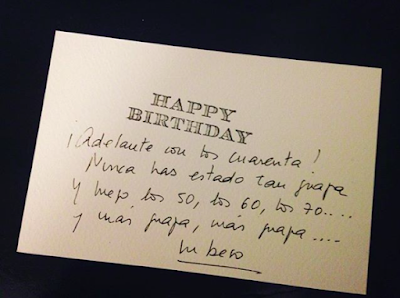 HAPPY
BIRTHDAY
¡Adelante con los cuarenta!
Nunca has estado tan guapa
Y luego los 50, los 60, los 70....
y más guapa, más guapa ....
Un beso